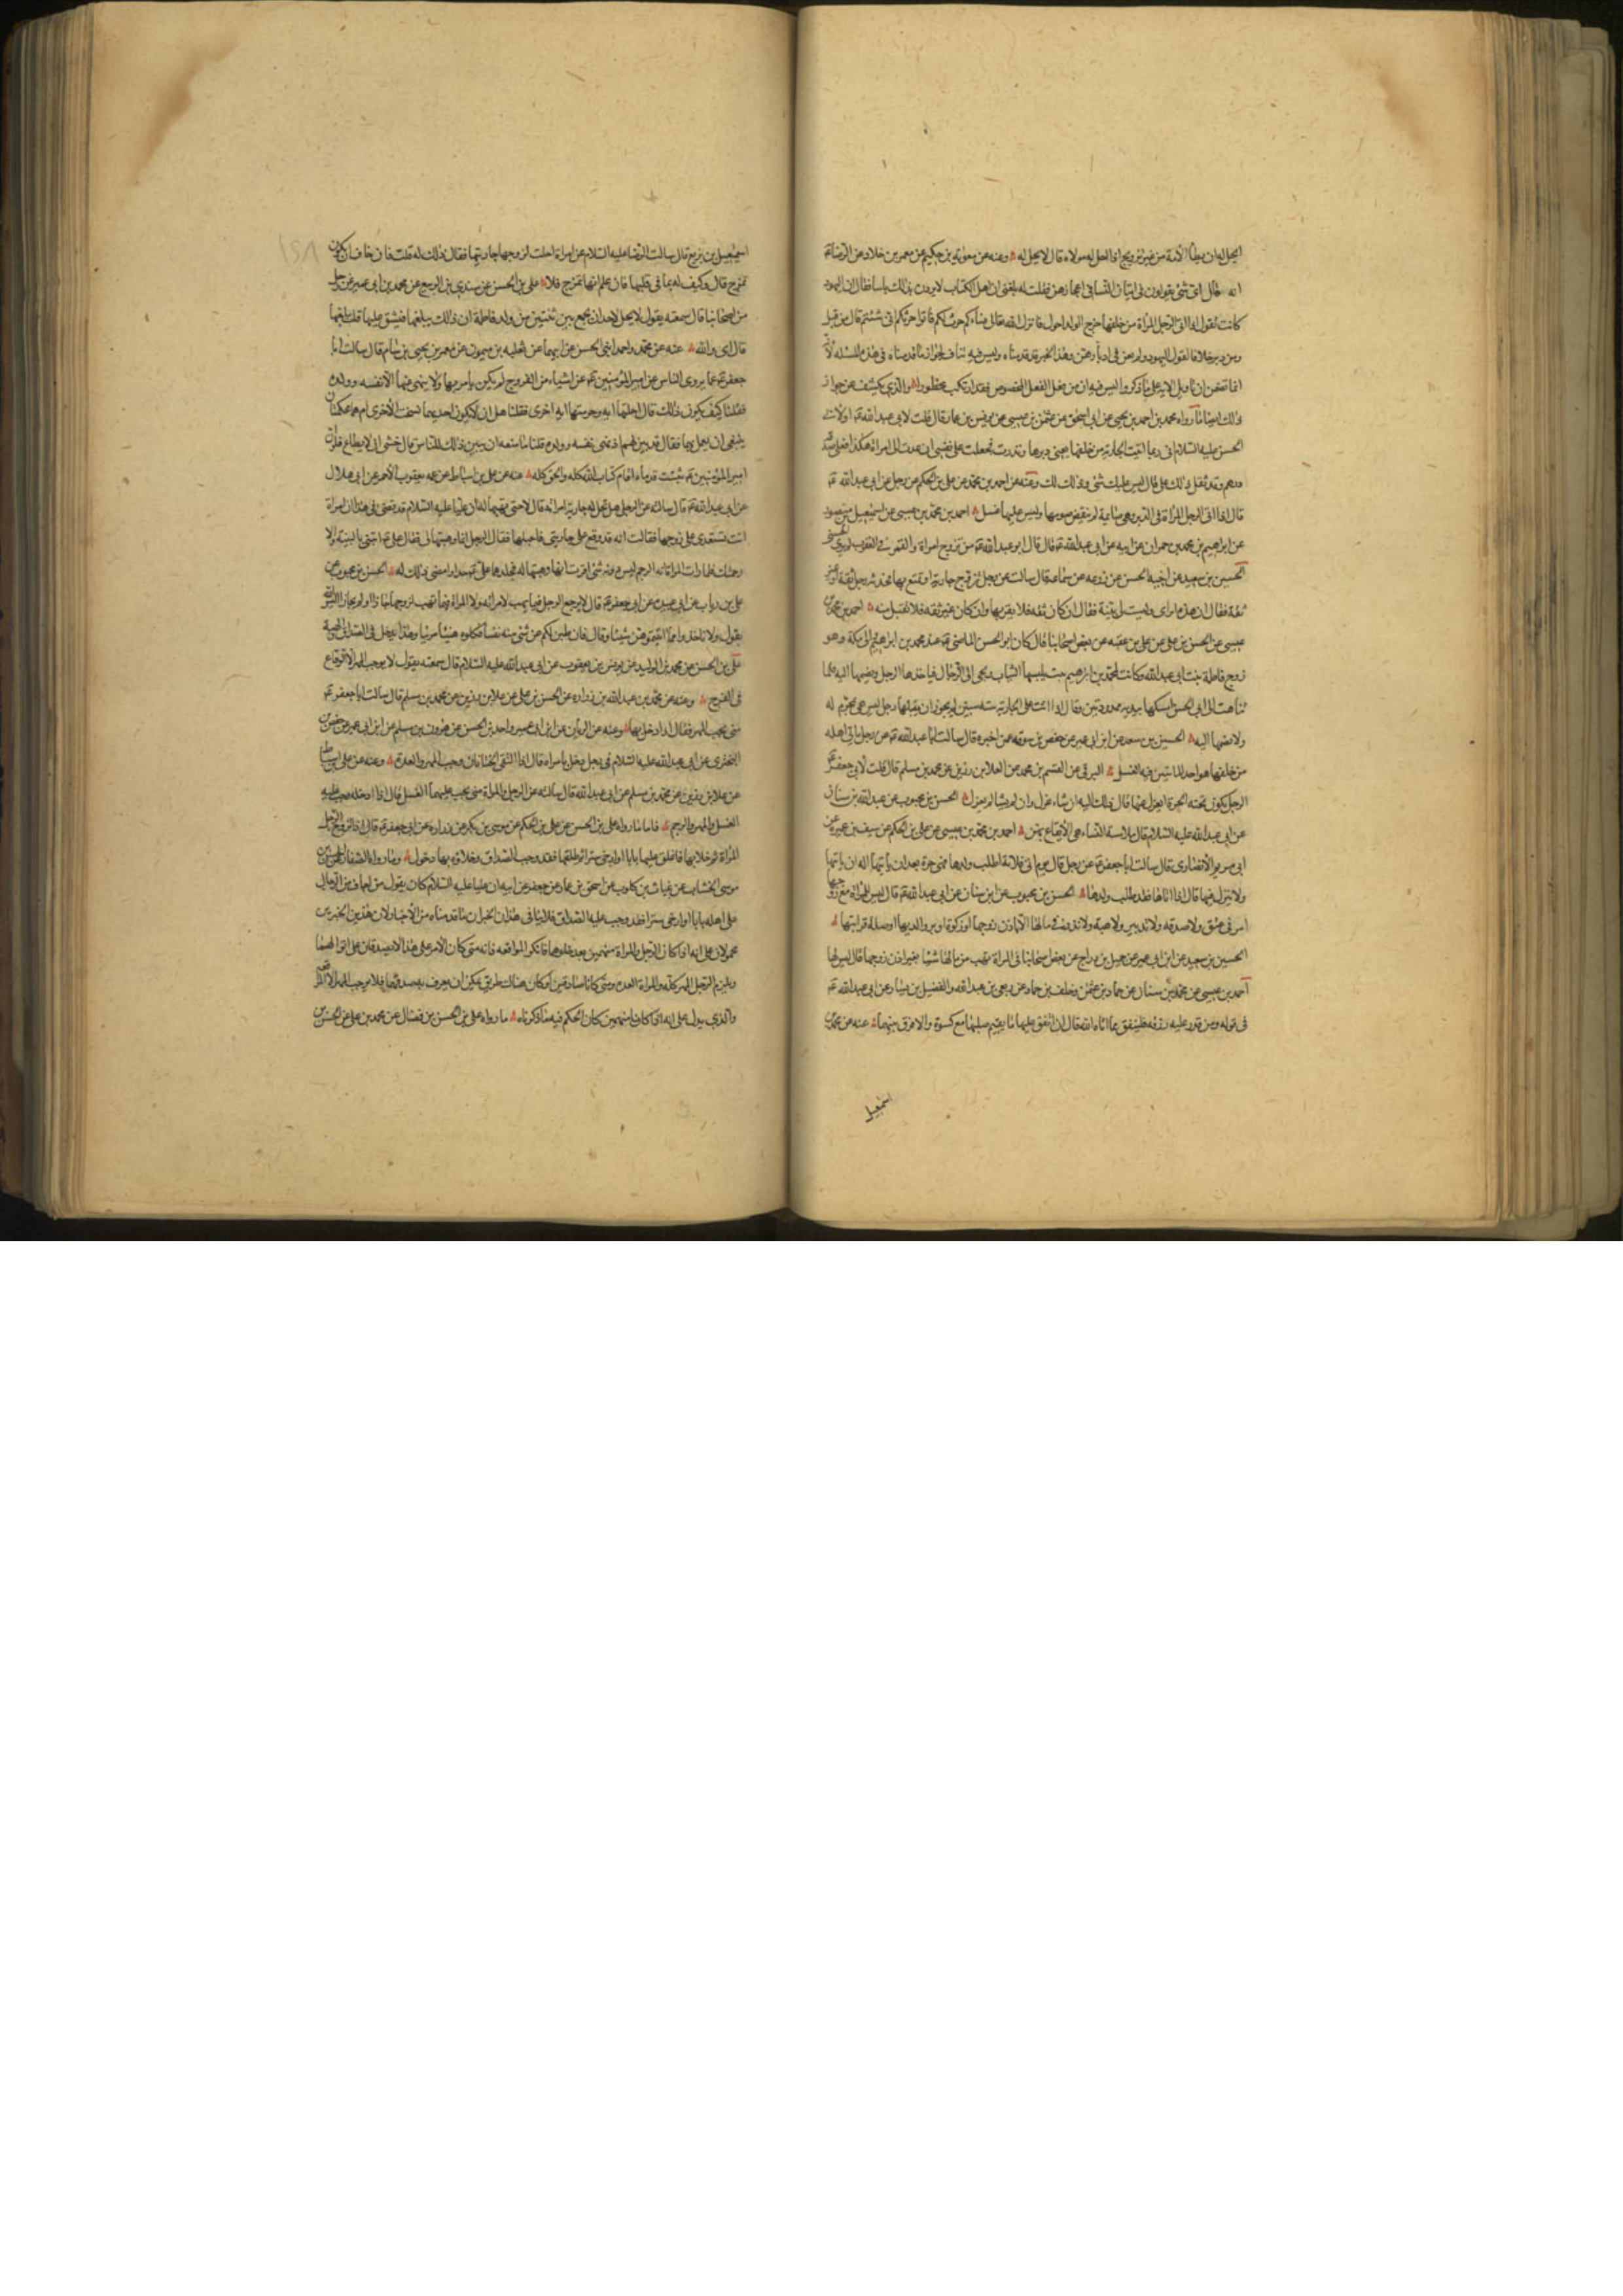 ايحل له ان يطأ الامة من غير تزويج اذا احل له مولاه قال لا يحل له وعنه عن معوية بن حكيم عن معمر بن خلاد عن الرضا ع
انه قال اى شئ يقولون فى اتيان النساء فى اعجازهن فقلت له بلغنى ان اهل الكتاب لا يرون بذلك باسا فقال ان اليهود
كانت تقول اذا اتى الرجل المراة من خلفها خرج الولد احول فانزل الله تعالى نساؤكم حرث لكم فاتوا حرثكم انى شئتم قال من قبل
ومن دبر خلافا لقول اليهود ولم يعن فى ادبارهن وهذا الخبر قد قدمناه وليس فيه تناف لجواز ما قدمناه فى هذه المسئلة لانه
انما تضمن ان تاويل الاية على ما ذكر وليس فيه ان من فعل الفعل المخصوص فقد ارتكب محظورا والذي يكشف عن جواز
ذلك ايضا ما رواه محمد بن احمد بن يحيى عن ابى اسحق عن عثمن بن عيسى عن يونس بن عمار قال قلت لابى عبد الله ع او لابى
الحسن عليه السلام انى ربما اتيت الجارية من خلفها يعنى دبرها ونذرت فجعلت على نفسى ان عدت الى امراة هكذا فعلى صدقة
درهم وقد ثقل ذلك على قال ليس عليك شئ وذلك لك وعنه عن احمد بن محمد عن على بن الحكم عن رجل عن ابى عبد الله ع
قال اذا اتى الرجل المراة فى الدبر وهى صائمة لم ينقض صومها وليس عليها غسل احمد بن محمد بن عيسى عن اسمعيل بن منصور
عن ابراهيم بن محمد بن حمران عن ابيه عن ابى عبد الله ع قال قال ابو عبد الله ع من تزوج امراة والقمر فى العقرب لم ير الحسنى
الحسين بن سعيد عن اخيه الحسن عن زرعه عن سماعة قال سالته عن رجل تزوج جارية او تمتع بها فحدثه رجل ثقة او غير
ثقة فقال ان هذه امراتى وليست لى بينة فقال ان كان ثقه فلا يقربها وان كان غير ثقه فلا يقبل منه احمد بن محمد بن
عيسى عن الحسن بن على عن على بن عقبه عن بعض اصحابنا قال كان ابو الحسن الماضى ع عند محمد بن ابراهيم والى مكة وهو
زوج فاطمة بنت ابى عبد الله وكانت لمحمد بن ابراهيم بنت يلبسها الثياب وتجى الى الرجال فياخذها الرجل ويضمها اليه فلما
تناهت الى ابى الحسن امسكها بيديه ممدودتين وقال اذا اتت على الجارية ست سنين لم يجوز ان يقبلها رجل ليس هى بمحرم له
ولا يضمها اليه الحسين بن سعيد عن ابن ابى عمير عن حفص بن سوقه عمن اخبره قال سالت ابا عبد الله ع عن رجل ياتى اهله
من خلفها هو احد الماتيين فيه الغسل البرقى عن القسم بن محمد عن العلا بن رزين عن محمد بن مسلم قال قلت لابى جعفر ع
الرجل يكون تحته الحرة ايعزل عنها قال ذلك اليه ان شاء عزل وان لم يشا لم يعزل الحسن بن محبوب عن عبد الله بن سنان
عن ابى عبد الله عليه السلام قال ملامسة النساء هى الايقاع بهن احمد بن محمد بن عيسى عن على بن الحكم عن سيف بن عميرة عن
ابى مريم الانصارى قال سالت ابا جعفر ع عن رجل قال يوم اتى فلانة اطلب ولدها فهى حرة بعد ان ياتيها اله ان ياتيها
ولا ينزل فيها قال اذا اتاها فقد طلب ولدها الحسن بن محبوب عن ابن سنان عن ابى عبد الله ع قال ليس للمراة مع زوجها
امر فى عتق ولا صدقه ولا تدبير ولا هبة ولا نذر فى مالها الا باذن زوجها الا زكوة او بر والديها او صلة قرابتها
الحسين بن سعيد عن ابن ابى عمير عن جميل بن دراج عن بعض اصحابنا فى المراة تهب من مالها شيئا بغير اذن زوجها قال ليس لها
احمد بن عيسى عن محمد بن سنان عن حماد بن عثمن وخلف بن حماد عن ربعى بن عبد الله والفضيل بن يسار عن ابى عبد الله ع
فى قوله ومن قدر عليه رزقه فلينفق مما اتاه الله قال ان انفق عليها ما يقيم صلبها مع كسوة والا فرق بينهما عنه عن محمد بن
اسمعيل
١٤٨
اسمعيل بن بزيع قال سالت الرضا عليه السلام عن امراة احلت لزوجها جاريتها فقال ذلك له قلت فان خاف ان تكون
تمزح قال وكيف له بما فى قلبها فان علم انها تمزح فلا على بن الحسن عن سندى بن الربيع عن محمد بن ابى عمير عن رجل
من اصحابنا قال سمعته يقول لا يحل لاحد ان يجمع بين ثنتين من ولد فاطمة ان ذلك يبلغها فيشق عليها قلت يبلغها
قال اى والله عنه عن محمد واحمد ابنى الحسن عن ابيهما عن ثعلبه بن ميمون عن معمر بن يحيى بن سام قال سالت ابا
جعفر ع عما يروى الناس عن امير المؤمنين ع عن اشياء من الفروج لم يكن يامر بها ولا ينهى عنها الا نفسه وولده
فقلنا كيف يكون ذلك قال احلتها اية وحرمتها اية اخرى فقلنا هل ان لا يكون احديهما نسخت الاخرى ام هما محكمتان
ينبغى ان يعمل بهما فقال قد بين لهم اذ نهى نفسه وولده قلنا ما منعه ان يبين ذلك للناس قال خشى ان لا يطاع فلو ان
امير المؤمنين ع ثبتت قدماه اقام كتاب الله كله والحق كله عنه عن على بن اسباط عن عمه يعقوب الاحمر عن ابى هلال
عن ابى عبد الله ع قال سالته عن الرجل هل تحل له جارية امراته قال لا حتى تهبها له ان عليا عليه السلام قد قضى فى هذا ان امراة
اتت تستعدى على زوجها فقالت انه قد وقع على جاريتى فاحبلها فقال الرجل انها وهبتها لى فقال على ع ائتنى بالبينة والا
رجمتك فلما رات المراة انه الرجم ليس دونه شئ اقرت انها وهبتها له فجلدها على ع حدا وامضى ذلك له الحسن بن محبوب عن
على بن رياب عن ابى عبيدة عن ابى جعفر ع قال لا يرجع الرجل فيما يهب لامراته ولا المراة فيما تهب لزوجها حازا او لم يحازا اليس الله
يقول ولا تاخذوا مما اتيتموهن شيئا وقال فان طبن لكم عن شئ منه نفسا فكلوه هنيئا مريئا وهذا يدخل فى الصداق والهبة
على بن الحسن عن محمد بن الوليد عن يونس بن يعقوب عن ابى عبد الله عليه السلام قال سمعته يقول لا يوجب المهر الا الوقاع
فى الفرج وعنه عن محمد بن عبد الله بن زرارة عن الحسن بن على عن علا بن رزين عن محمد بن مسلم قال سالت ابا جعفر ع
متى يجب المهر فقال اذا دخل بها وعنه عن الزيات عن ابن ابى عمير واحمد بن الحسن عن هرون بن مسلم عن ابن ابى عمير عن حفص بن
البخترى عن ابى عبد الله عليه السلام فى رجل دخل بامراة قال اذا التقى الختانان وجب المهر والعدة وعنه عن على بن اسباط
عن علا بن رزين عن محمد بن مسلم عن ابى عبد الله قال سالته عن الرجل والمراة متى يجب عليهما الغسل قال اذا ادخله وجب عليه
الغسل والمهر والرجم فاما ما رواه على بن الحسن عن على بن الحكم عن موسى بن بكر عن زرارة عن ابى جعفر ع قال اذا تزوج الرجل
المراة ثم خلا بها فاغلق عليها بابا او ارخى سترا ثم طلقها فقد وجب الصداق وخلاؤه بها دخول وما رواه الصفار عن الحسن بن
موسى الخشاب عن غياث بن كلوب عن اسحق بن عمار عن جعفر عن ابيه ان عليا عليه السلام كان يقول من اجاف من الرجال
على اهله بابا او ارخى سترا فقد وجب عليه الصداق فلا ينافى هذان الخبران ما قدمناه من الاخبار لان هذين الخبرين
محمولان على انه اذا كان الرجل والمراة متهمين بعد خلوهما فانكرا المواقعه فانه متى كان الامر على هذا لا يصدقان على اقوالهما
ويلزم الرجل المهر كله والمراة العدة ومتى كانا صادقين او كان هناك طريق يمكن ان يعرف به صدقهما فلا يوجب المهر الا المواقعة
والذي يدل على انه اذا كانا متهمين كان الحكم فيه ما ذكرناه ما رواه على بن الحسن بن فضال عن محمد بن على عن الحسن بن